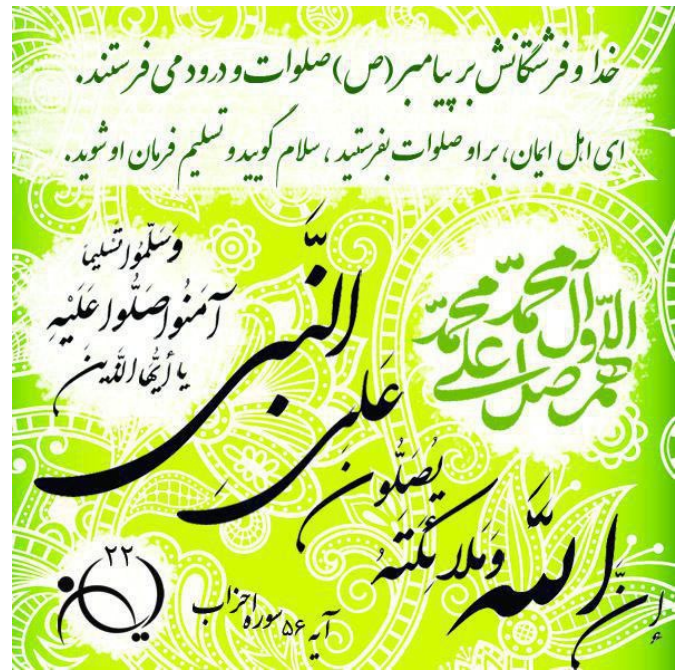 خدا و فرشتگانش بر پیامبر (ص) صلوات و درود می فرستند.
ای اهل ایمان، بر او صلوات بفرستید، سلام گویید و تسلیم فرمان او شوید.
اللهم صل علی محمد و آل محمد
إنَّ اللَّه وَملائِكَتَهُ يُصَلُّونَ عَلَى النَّبِي
يا أَيُّهَا الَّذين
آمَنُوا صَلُّوا عَلَيْهِ
وَسَلِّمُوا تَسْليماً
آیه ۵۶ سوره احزاب
۲۲